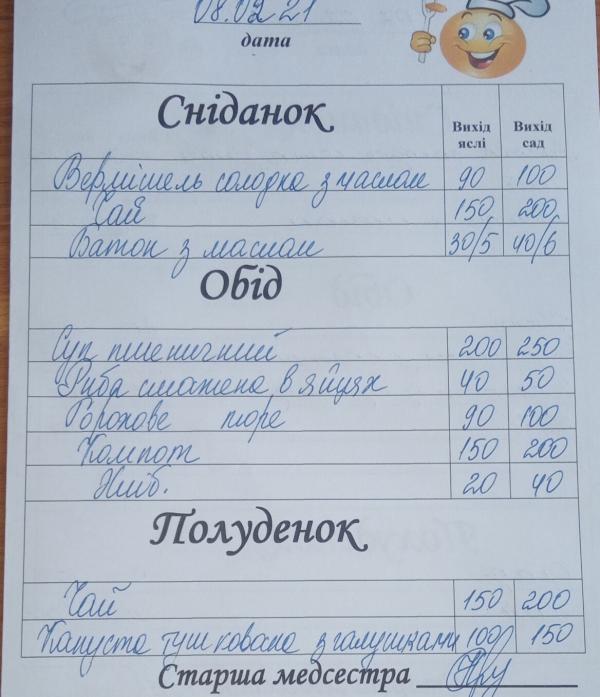 08.02.21
дата
Сніданок Вихід яслі Вихід сад
Вермішель солодка з маслом 90 100
Чай 150 200
Батон з маслом 30/5 40/6
Обід
Суп пшеничний 200 250
Риба смажена в яйцях 40 50
Горохове пюре 90 100
Компот 150 200
Хліб. 20 40
Полуденок
Чай 150 200
Капуста тушкована з галушками 100/ 150
Старша медсестра